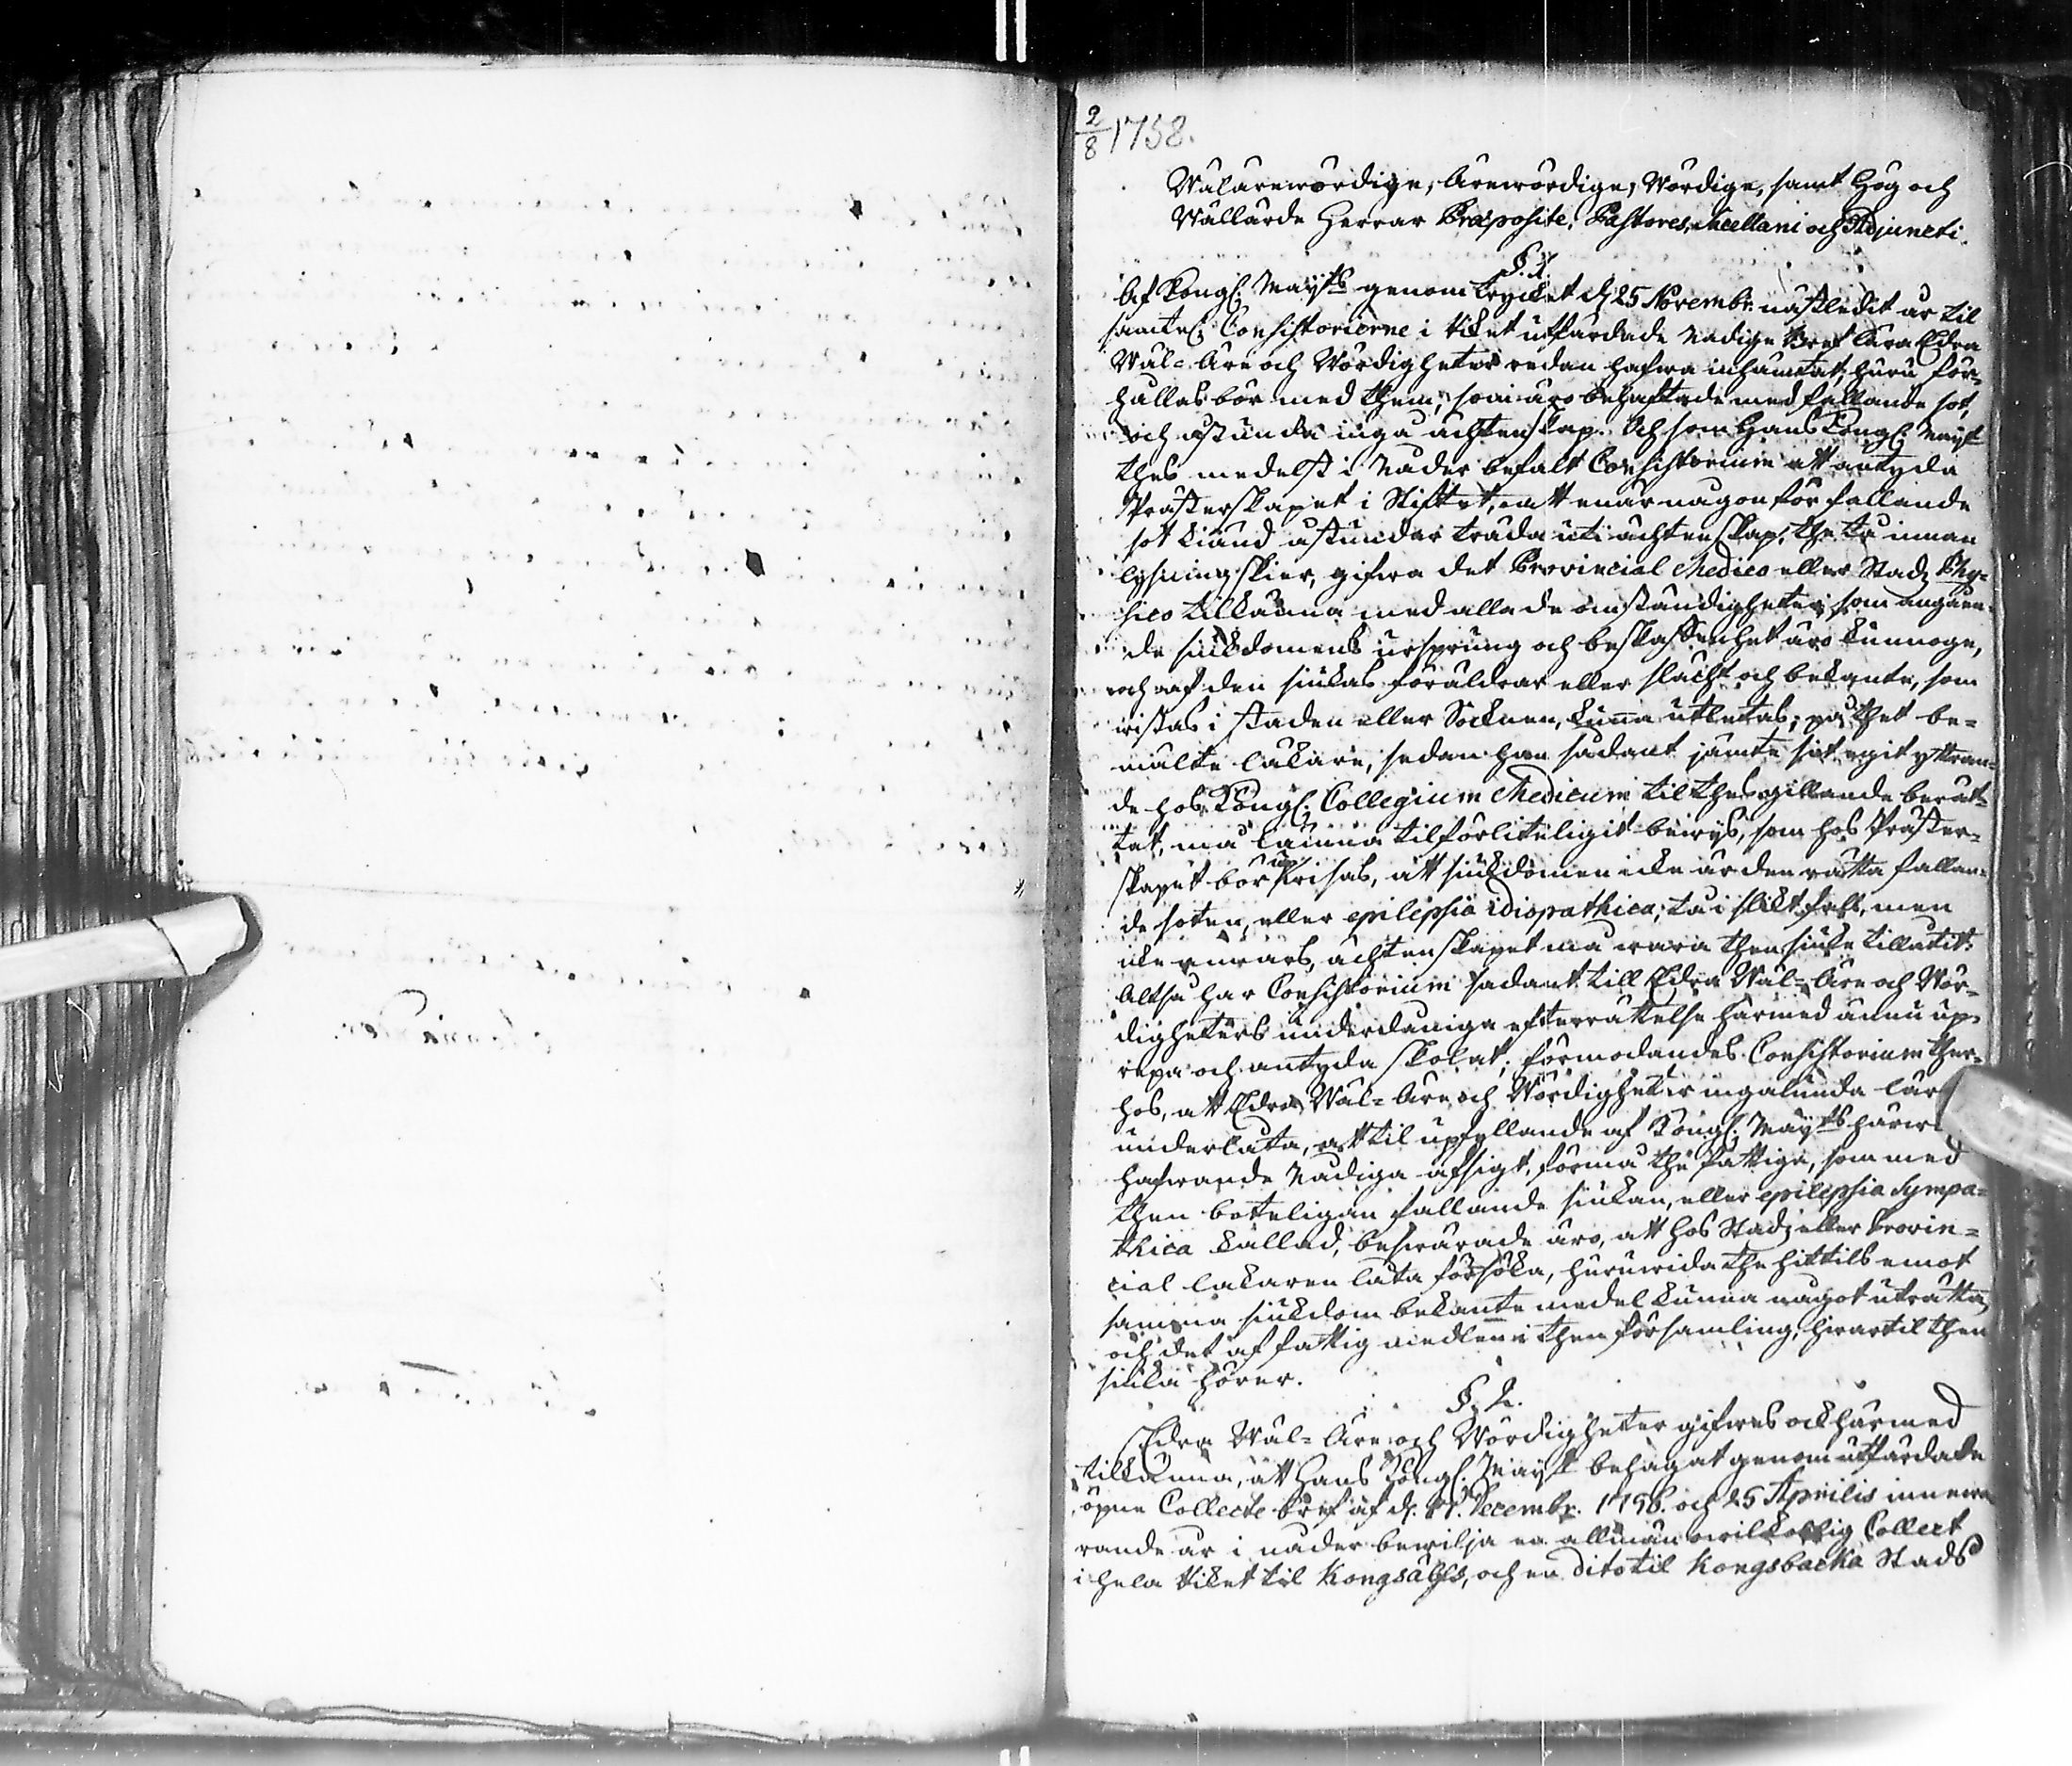 2/8 1758.
Wälärewördige, Ärewördige, Wördige, samt Hög och
Wällärde Herrar Præposite, Pastores, Sacellani och Adjuncti.
§. 1.
Af Kongl. Mayts genom trycket d. 25 Novembr. nästledit år til
samtel. Consistorierne i riket utfärdade Nådige Bref lära Edra
Wäl- Äre och Wördigheter redan hafwa inhämtat, huru för-
hållas bör med them, som äro behäftade med fallande sot,
och åstunda ingå ächtenskap. Och som Hans Kongl. Mayt
thes medelst i Nåder befalt Consistorium att antyda
Prästerskapet i Stiftet, att enär någon för fallande
sot känd åstundar träda uti ächtenskap, the tå innan
lysning skier, gifwa det Provincial Medico eller Stadz Phy-
sico tillkänna med alla de omständigheter, som angåen-
de siukdomens ursprung och beskaffenhet äro kunnoge,
och af den siukas föräldrar eller slächt och bekante, som
wistas i staden eller Socknen, kunna utletas; på thet be-
mälte läkare, sedan han sådant jämte sit egit yttran-
de hos Kongl. Collegium Medicum til thes gillande berät-
tat, må lämna tilförliteligit bewis, som hos Präster-
skapet bör upwisas, att siukdomen icke är den rätta fallan-
de soten, eller epilepsia idiopathica; tå i slikt fall, men
icke annars, ächtenskapet må wara then siuke tillåtit:
Altså har Consistorium sådant till Edra Wäl- Äre och Wör-
digheters underdåniga efterrättelse härmed ännu up-
repa och antyda skolat; förmodandes Consistorium ther-
hos, att Edra Wäl- Äre och Wördigheter ingalunda lär
underlåta, att til upfyllande af Kongl. Mayts härwid
hafwande Nådiga afsigt, förmå the fattiga, som med
then boteligan fallande siukan, eller epilepsia sympa-
thica kallad, beswärade äro, att hos Stadz eller Provin-
cial läkaren låta försöka, huruwida the hittils emot
samma siukdom bekante medel kunna något uträtta,
och det af fattig medlen i then församling, hwartil then
siuka hörer.
§. 2.
Edra Wäl- Äre och Wördigheter gifwes ock härmed
tilkänna, att Hans Kongl. Mayt behagat genom utfärdade
öpne Collecte bref af d. Decembr. 1756. och 25 Aprilis innewa
rande år i nåder bewilja en allmän owilkorlig Collect
i hela riket til Kongsälfs, och en dito til Kongsbacka Stads